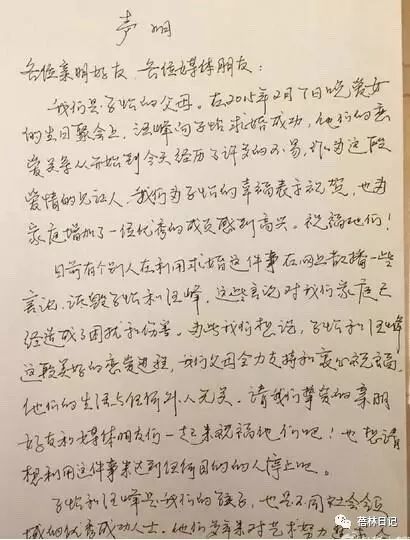 声明
各位亲朋好友、各位媒体朋友：
我们是子怡的父母。在2015年2月7日晚爱女
的生日聚会上，汪峰向子怡求婚成功，他们的恋
爱关系从开始到今天经历了许多的不易，作为这段
爱情的见证人，我们为子怡的幸福表示祝贺，也为
家庭增加了一位优秀的成员感到高兴。祝福他们！
目前有个别人在利用求婚这件事在网上散播一些
言论，诋毁子怡和汪峰，这些言论对我们家庭已
经造成了困扰和伤害。为此我们想说，子怡和汪峰
这段美好的恋爱进程，我们父母全力支持和衷心祝福，
他们的生活与任何外人无关。请我们挚爱的亲朋
好友和媒体朋友们一起来祝福他们吧！也想请
想利用这件事来达到任何目的的人停止吧。
子怡和汪峰是我们的孩子，也是不同社会领
域的优秀成功人士。他们多年来对艺术努力
蓉林日记